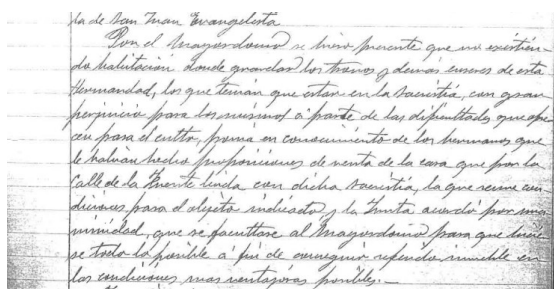 la de San Juan Evangelista
Por el Mayordomo se hizo presente que no existien-
do habitación donde guardar los tronos y demás enseres de esta
Hermandad, los que tenían que estar en la sacristía, con gran
perjuicio para los mismos á parte de las dificultades que ofre-
cen para el culto, ponia en conocimiento de los hermanos que
le habian hecho proposiciones de venta de la casa que por la
Calle de la Fuente linda con dicha sacristía, la que reune con-
diciones para el objeto indicado, y la Junta acordó por una-
nimidad, que se facultase al Mayordomo para que hicie-
se todo lo posible á fin de conseguir referido inmueble en
las condiciones mas ventajosas posibles.—